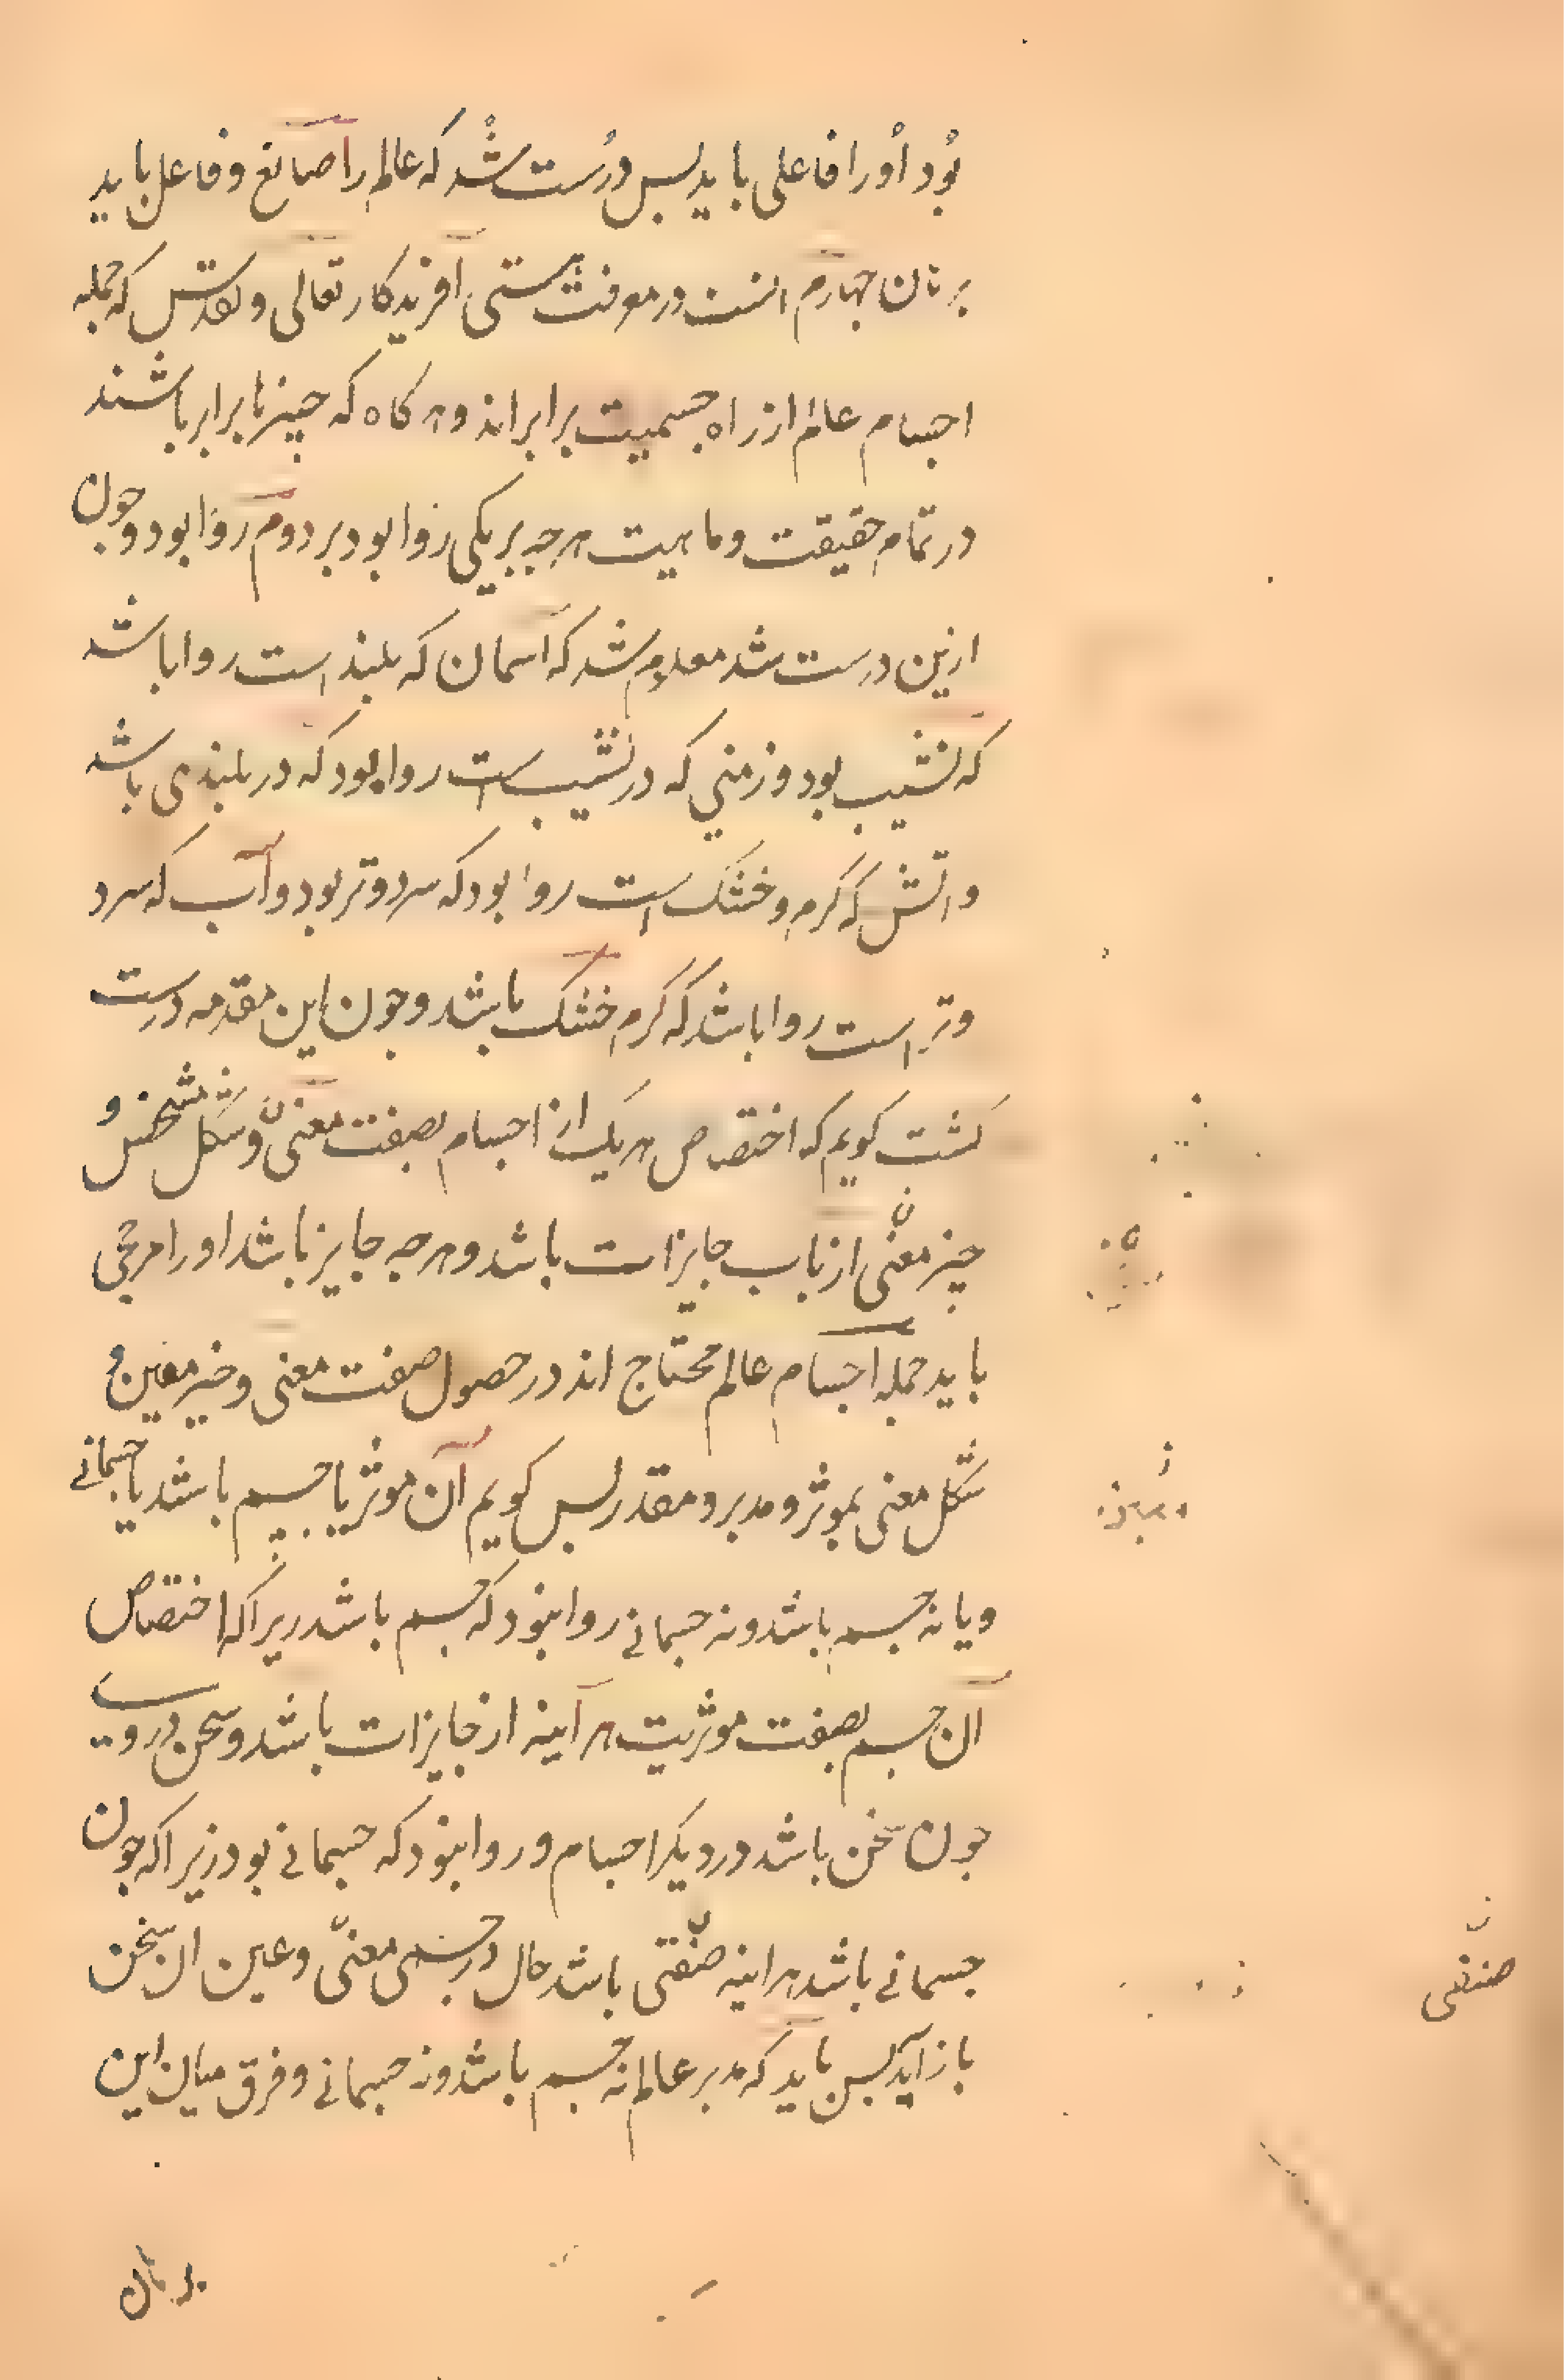 بود اورا فاعلی باید پس درست شد که عالم را صانع و فاعل باید
برهان چهارم انست در معرفت هستی آفریدکار تعالی و تقدس که جمله
اجسام عالم از راه جسمیت برابراند و هرکاه که چیزها برابر باشند
در تمام حقیقت و ماهیت هرچه بریکی روا بود بر دوم روا بود و چون
ازین درست شد معلوم شد که آسمان که بلند است روا باشد
که نشیب بود و زمین که در نشیب است روا بود که در بلندی باشد
و اتش که کرم و خشک است روا بود که سرد و تر بود و آب که سرد
و تر است روا باشد که کرم خشک باشد و چون این مقدمه درست
کشت کویم که اختصاص هریک از اجسام بصفت معین و شکل مشخص و
حیز معین از باب جایزات باشد و هرچه جایز باشد اورا مرجحی
باید جمله اجسام عالم محتاج اند در حصول صفت معنی و حیز معین و
شکل معنی بموثر و مدبر و مقدر پس کویم آن موثر یا جسم باشد یا جسمانی
و یا نه جسم باشد و نه جسمانی روا نبود که جسم باشد زیراکه اختصاص
آن جسم بصفت موثریت هرآینه از جایزات باشد و سخن در وی
چون سخن باشد در دیکر اجسام و روا نبود که جسمانی بود زیراکه چون
جسمانی باشد هراینه صفتی باشد حال در جسمی معین و عین ان سخن
باز آید پس باید که مدبر عالم نه جسم باشد و نه جسمانی و فرق میان این
برهان